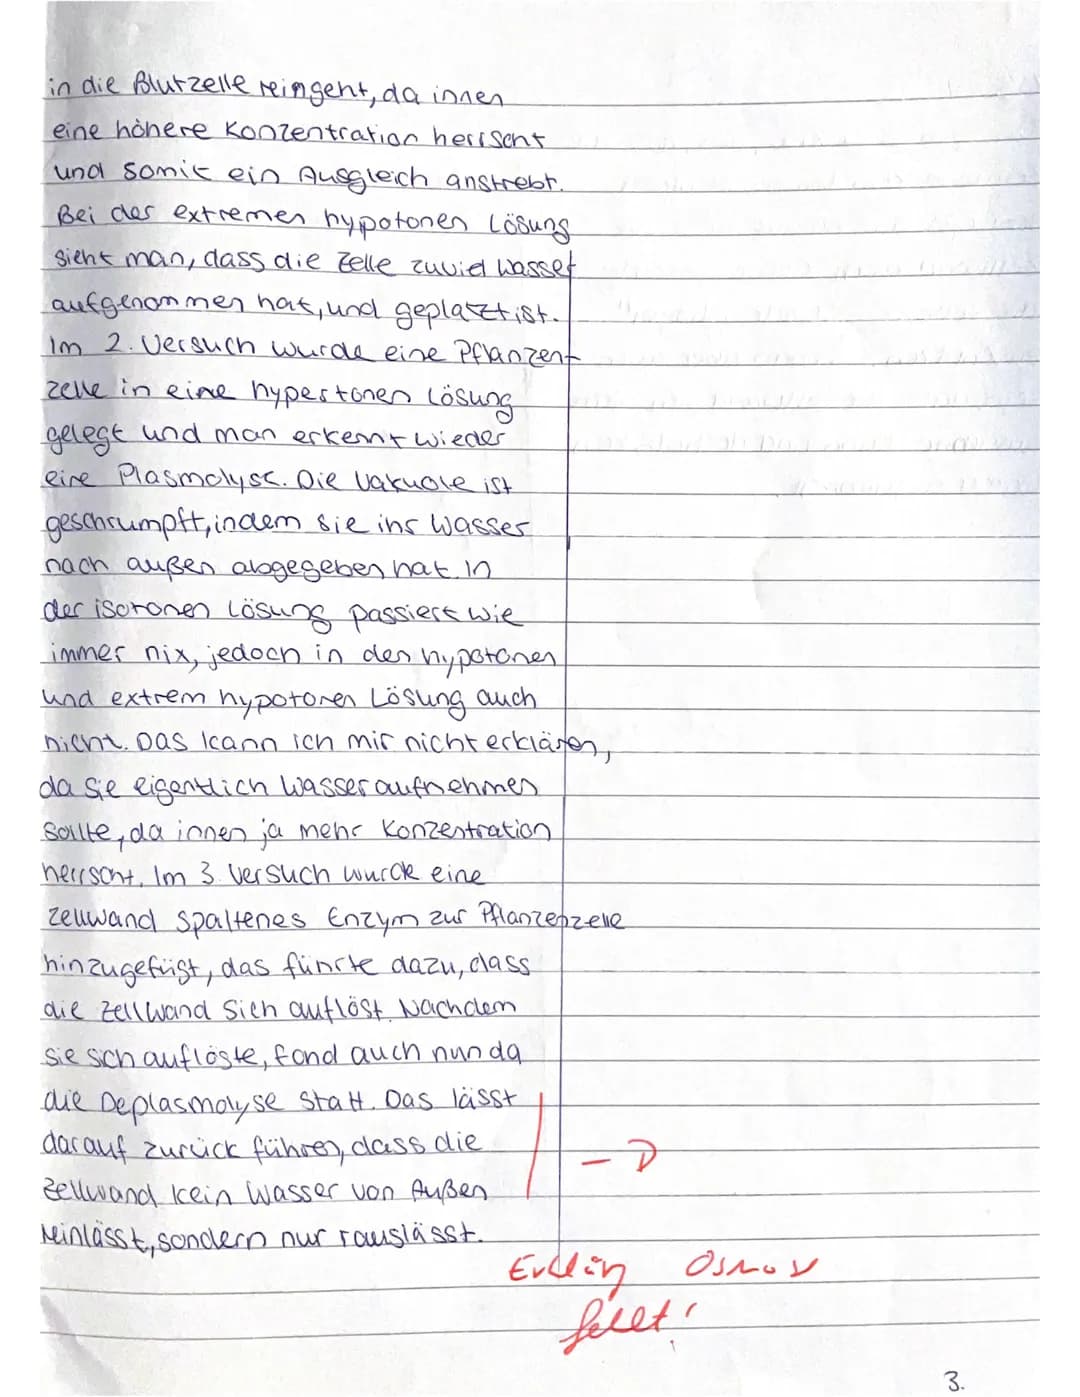 in die Blutzelle reingeht, da innen
eine höhere Konzentration herrscht
und somit ein Ausgleich anstrebt.
Bei der extremen hypotonen Lösung
sieht man, dass die Zelle zuviel Wasser
aufgenommen hat, und geplatzt ist.
Im 2. Versuch wurde eine Pflanzen-
zelle in eine hypertonen Lösung
gelegt und man erkennt wieder
eine Plasmolyse. Die Vakuole ist
geschrumpft, indem sie ihr Wasser
nach außen abgegeben hat. In
der isotonen Lösung passiert wie
immer nix, jedoch in der hypotonen
und extrem hypotonen Lösung auch
nicht. Das kann ich mir nicht erklären,
da sie eigentlich Wasser aufnehmen
sollte, da innen ja mehr Konzentration
herrscht. Im 3. Versuch wurde eine
Zellwand spaltenes Enzym zur Pflanzenzelle
hinzugefügt, das führte dazu, dass
die Zellwand sich auflöst. Nachdem
sie sich auflöste, fand auch nun da
die Deplasmolyse statt. Das lässt
darauf zurück führen, dass die
Zellwand kein Wasser von Außen
reinlässt, sondern nur rauslässt.
– D
fehlt!
3.